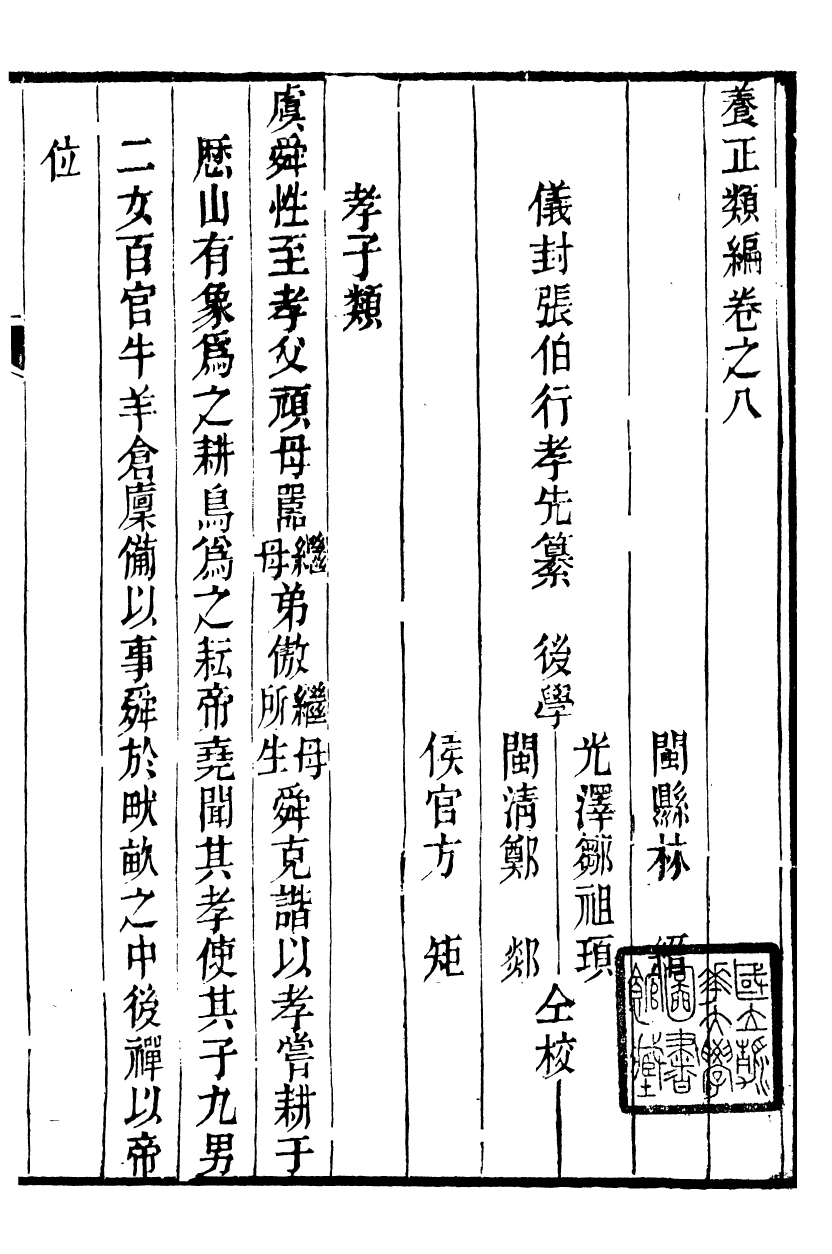 養正類編卷之八
閩縣林
儀封張伯行孝先纂 後學
光澤鄒祖頊
閩清鄭 郯
仝校
侯官方 矩
孝子類
虞舜性至孝父頑母嚚繼母弟傲繼母所生舜克諧以孝嘗耕于
歷山有象爲之耕鳥爲之耘帝堯聞其孝使其子九男
二女百官牛羊倉廩備以事舜於畎畝之中後禪以帝
位
國立清
華大學
圖書
館藏